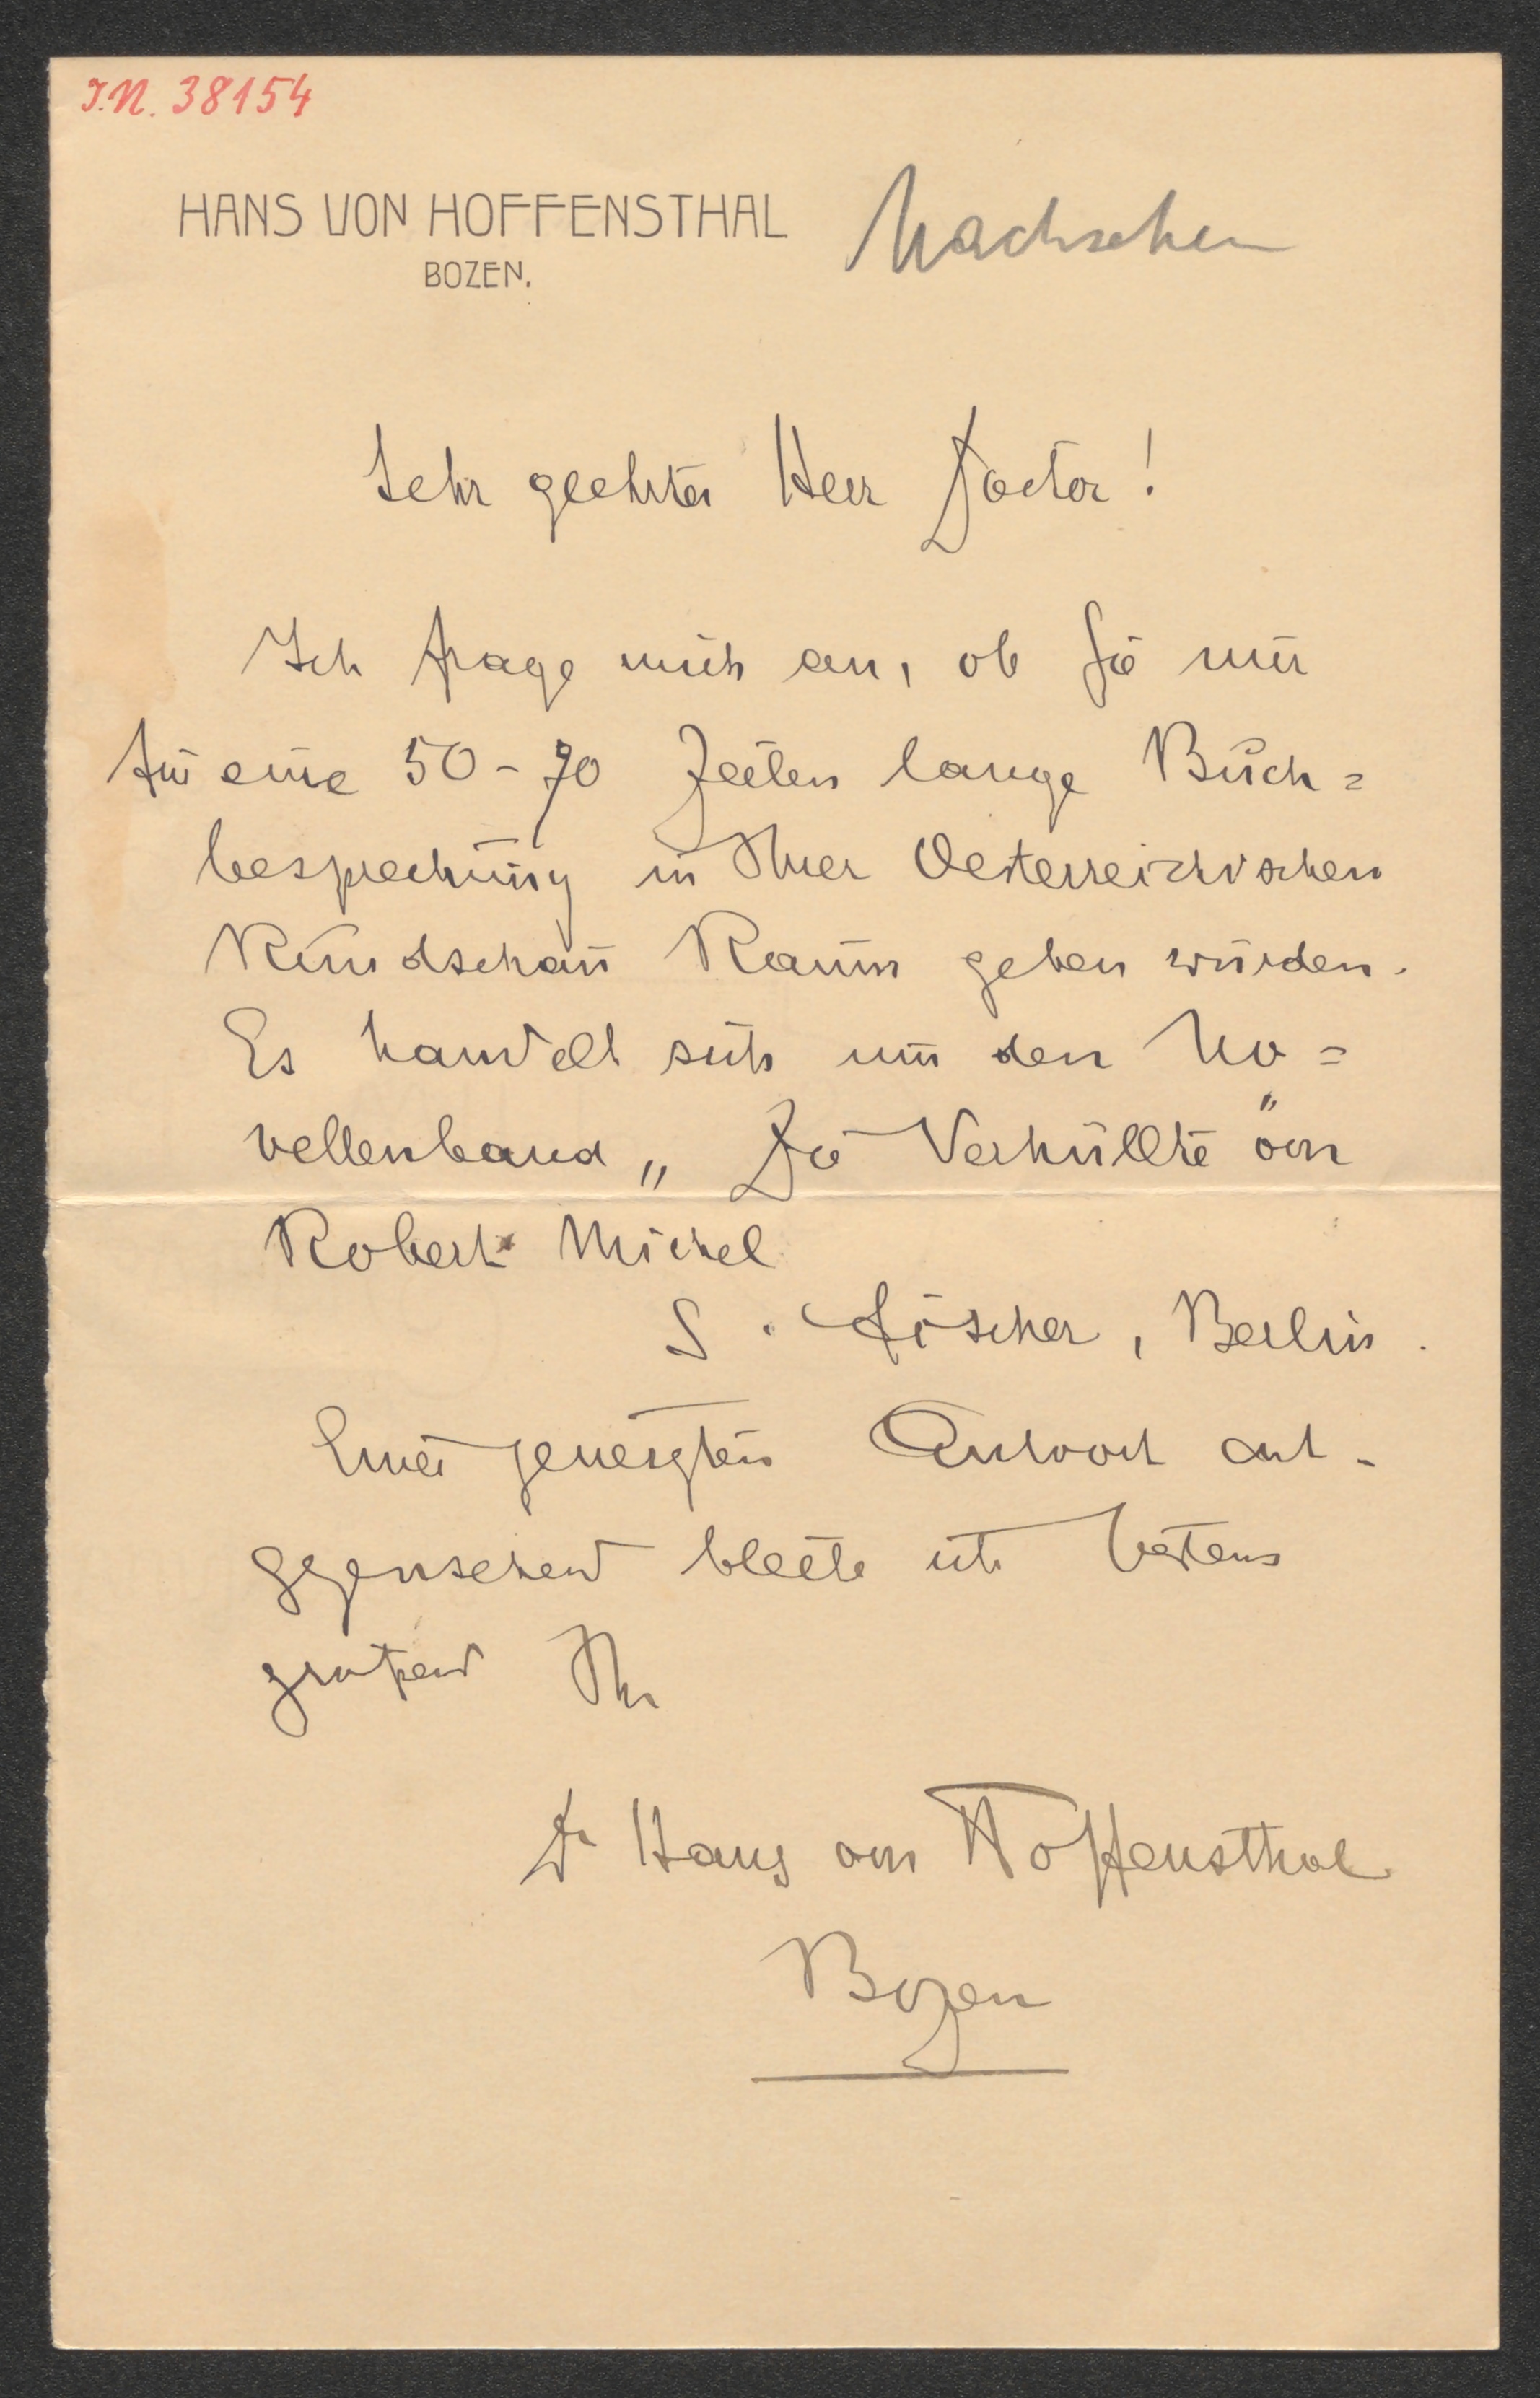 I.N. 38154
HANS VON HOFFENSTHAL
BOZEN.
Nachsehen
Sehr geehrter Herr Doctor!
Ich frage mich an, ob Sie mir
für eine 50-70 Zeilen lange Buch=
besprechung in Ihrer Oesterreichischen
Rundschau Raum geben würden.
Es handelt sich um den No=
vellenband „Die Verhüllte" von
Robert Michel
S. Fischer, Berlin.
Einer geneigten Antwort ent-
gegensehend bleibe ich bestens
grüßend Ihr
Dr Hans von Hoffensthal
Bozen